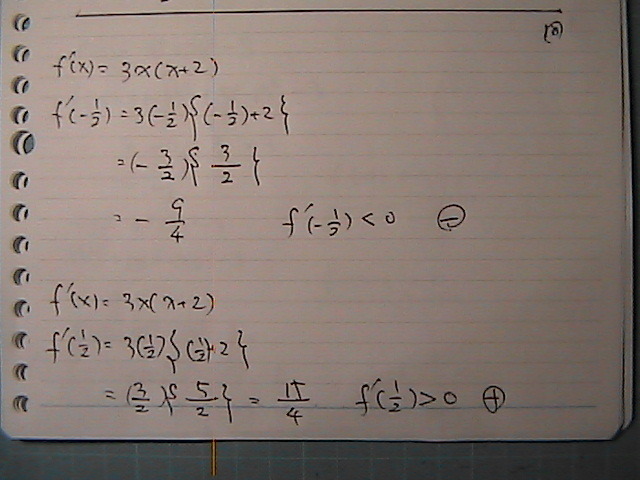 f'(x) = 3x(x+2)
f'(-1/2) = 3(-1/2){(-1/2)+2}
= (-3/2){3/2}
= -9/4 f'(-1/2) < 0 ⊖
f'(x) = 3x(x+2)
f'(1/2) = 3(1/2){(1/2)+2}
= (3/2){5/2} = 15/4 f'(1/2) > 0 ⊕